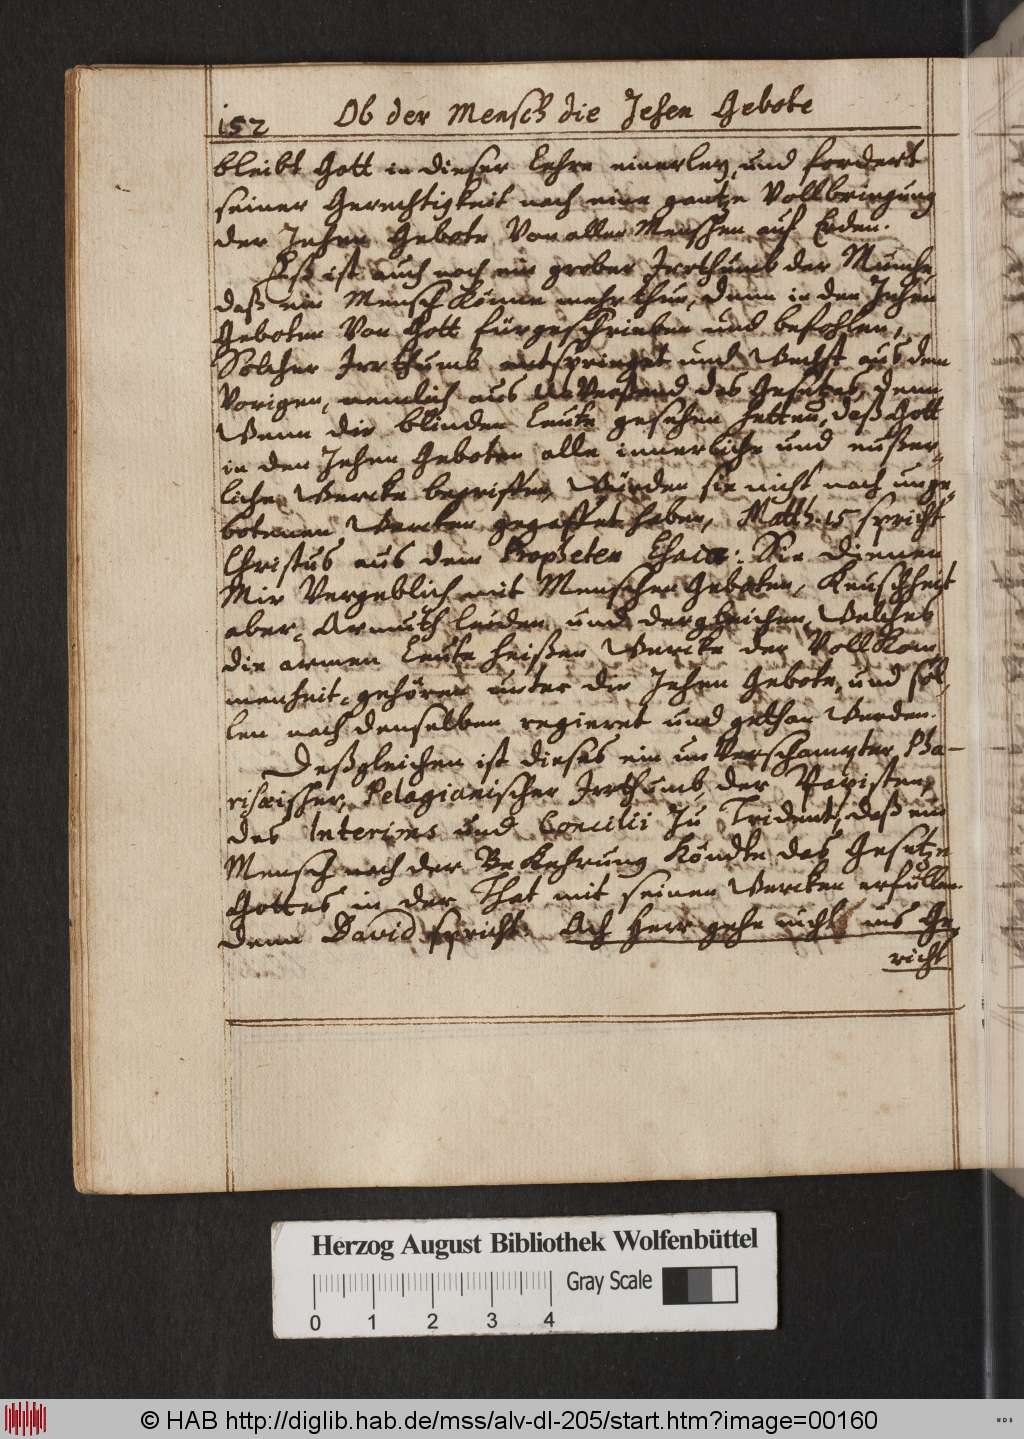 152
Ob der Mensch die Zehen Gebote
bleibt Gott in dieser Lehre einerley, und fordert
seiner Gerechtigkeit nach eine gantze Vollbringung
der Zehen Gebote Von allen Menschen auf Erden.
Eß ist auch noch ein grober Irrthumb der Munche,
daß ein Mensch Könne mehr thun, denn in den Zehen
Geboten Von Gott fürgeschrieben und befohlen,
Solcher Irrthumb entspringet und Wechst aus dem
Vorigen, nemlich aus Verstand des Gesetzes, denn
Wenn die blinden Leute gesehen hetten, daß Gott
in den Zehen Geboten alle innerliche und eußer-
liche Wercke begriffen, Würden sie nicht nach unge-
botenen Wercken gegaffet haben, Matth. 15 spricht
Christus aus dem Propheten Esaia: Sie dienen
Mir Vergeblich mit Menschen Geboten, Keuschheit
aber, Armuth leiden und dergleichen, Welches
die armen Leute heißen Wercke der VollKom-
menheit, gehören unter die Zehen Gebote, und sol-
len nach denselben regieret und gethan Werden.
Deßgleichen ist dieses ein unVerschampter, Pha-
risæischer, Pelagianischer Irrthumb der Papisten,
des Interims und Concilii zu Trident, daß ein
Mensch nach der BeKehrung Köndte das Gesetze
Gottes in der That mit seinen Wercken erfüllen.
Denn David spricht: Ach Herr gehe nicht ins Ge-
richt
Herzog August Bibliothek Wolfenbüttel
Gray Scale
0 1 2 3 4
© HAB http://diglib.hab.de/mss/alv-dl-205/start.htm?image=00160